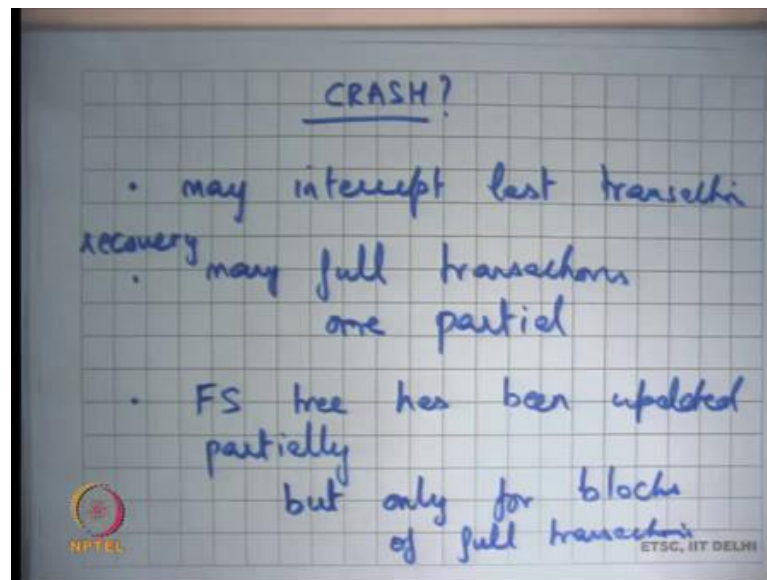 CRASH?
• may interrupt last transaction
recovery
• many full transactions
one partial
• FS tree has been updated
partially
but only for blocks
of full transactions
NPTEL
ETSC, IIT DELHI